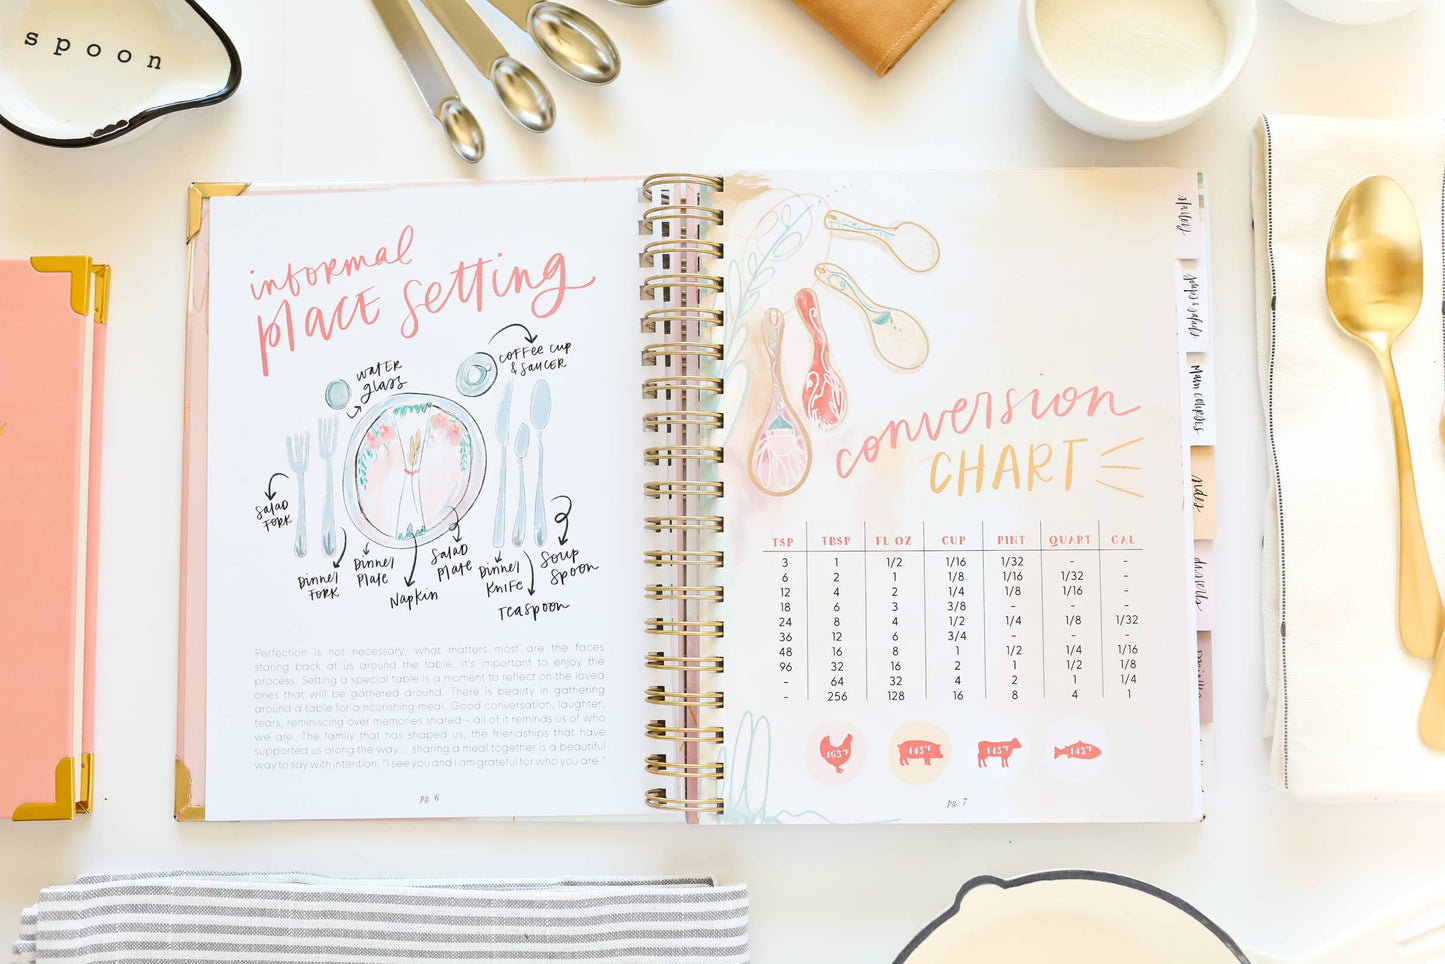 spoon
informal
PLACE Setting
water
glass
coffee cup
& SAUCER
Salad
FORK
Dinner
FORK
Dinner
Plate
Napkin
Salad
Plate
Dinner
KNIFE
Teaspoon
Soup
Spoon
Perfection is not necessary, what matters most are the faces
staring back at us around the table. It's important to enjoy the
process. Setting a special table is a moment to reflect on the loved
ones that will be gathered around. There is beauty in gathering
around a table for a nourishing meal. Good conversation, laughter,
tears, reminiscing over memories shared - all of it reminds us of who
we are. The family that has shaped us, the friendships that have
supported us along the way... sharing a meal together is a beautiful
way to say with intention, "I see you and I am grateful for who you are."
pg. 6
conversion
CHART
TSP TBSP FL OZ CUP PINT QUART GAL
3 1 1/2 1/16 1/32 - -
6 2 1 1/8 1/16 1/32 -
12 4 2 1/4 1/8 1/16 -
18 6 3 3/8 - - -
24 8 4 1/2 1/4 1/8 1/32
36 12 6 3/4 - - -
48 16 8 1 1/2 1/4 1/16
96 32 16 2 1 1/2 1/8
- 64 32 4 2 1 1/4
- 256 128 16 8 4 1
165°F
145°F
145°F
145°F
pg. 7
soups & salads
MAIN COURSES
sides
desserts